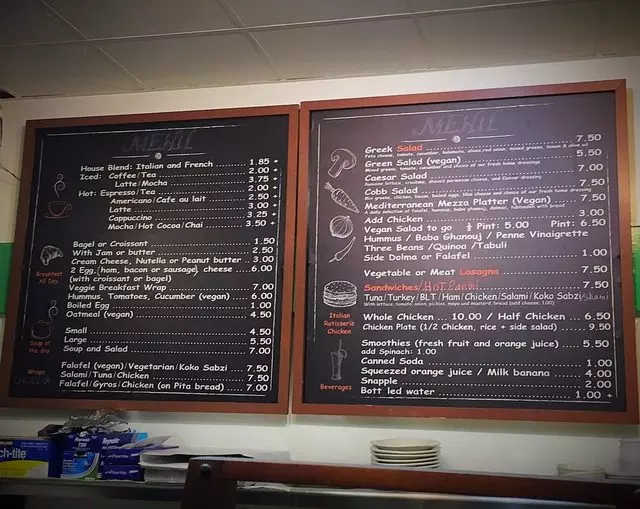 MENU
House Blend: Italian and French ........ 1.85 +
Iced: Coffee/Tea ........ 2.00 +
Latte/Mocha ........ 3.75 +
Hot: Espresso/Tea ........ 2.00 +
Americano/Cafe au lait ........ 2.50 +
Latte ........ 3.00 +
Cappuccino ........ 3.25 +
Mocha/Hot Cocoa/Chai ........ 3.50 +
Breakfast
All Day
Bagel or Croissant ........ 1.50
With Jam or butter ........ 2.50
Cream Cheese, Nutella or Peanut butter .. 3.00
2 Egg,(ham, bacon or sausage), cheese ....6.00
(with croissant or bagel)
Veggie Breakfast Wrap ........ 7.00
Hummus, Tomatoes, Cucumber (vegan) ...... 6.00
Boiled Egg ........ 1.00
Oatmeal (vegan) ........ 4.50
Soup of
the day
Small ........ 4.50
Large ........ 5.50
Soup and Salad ........ 7.00
Wraps
Falafel (vegan)/Vegetarian/Koko Sabzi ... 7.50
Salami/Tuna/Chicken ........ 7.50
Falafel/Gyros/Chicken (on Pita bread) ..... 7.00
MENU
Greek Salad ........ 7.50
Green Salad (vegan) ........ 5.50
Caesar Salad ........ 7.00
Cobb Salad ........ 7.50
Mediterranean Mezza Platter (Vegan) ........ 7.50
Add Chicken ........ 3.00
Vegan Salad to go ½ Pint: 5.00 Pint: 6.50
Hummus / Baba Ghanouj / Penne Vinaigrette
Three Beans /Quinoa /Tabuli
Side Dolma or Falafel ........ 1.00
Vegetable or Meat Lasagna ........ 7.50
Sandwiches/Hot Panini ........ 7.50
Tuna/Turkey/BLT/Ham/Chicken/Salami/Koko Sabzi
Italian
Rotisserie
Chicken
Whole Chicken .... 10.00 / Half Chicken ..... 6.50
Chicken Plate (1/2 Chicken, rice + side salad) ..... 9.50
Smoothies (fresh fruit and orange juice) ..... 5.50
add Spinach: 1.00
Canned Soda ........ 1.00
Squeezed orange juice / Milk banana ..... 4.00
Snapple ........ 2.00
Bott led water ........ 1.00 +
Beverages
Reynolds